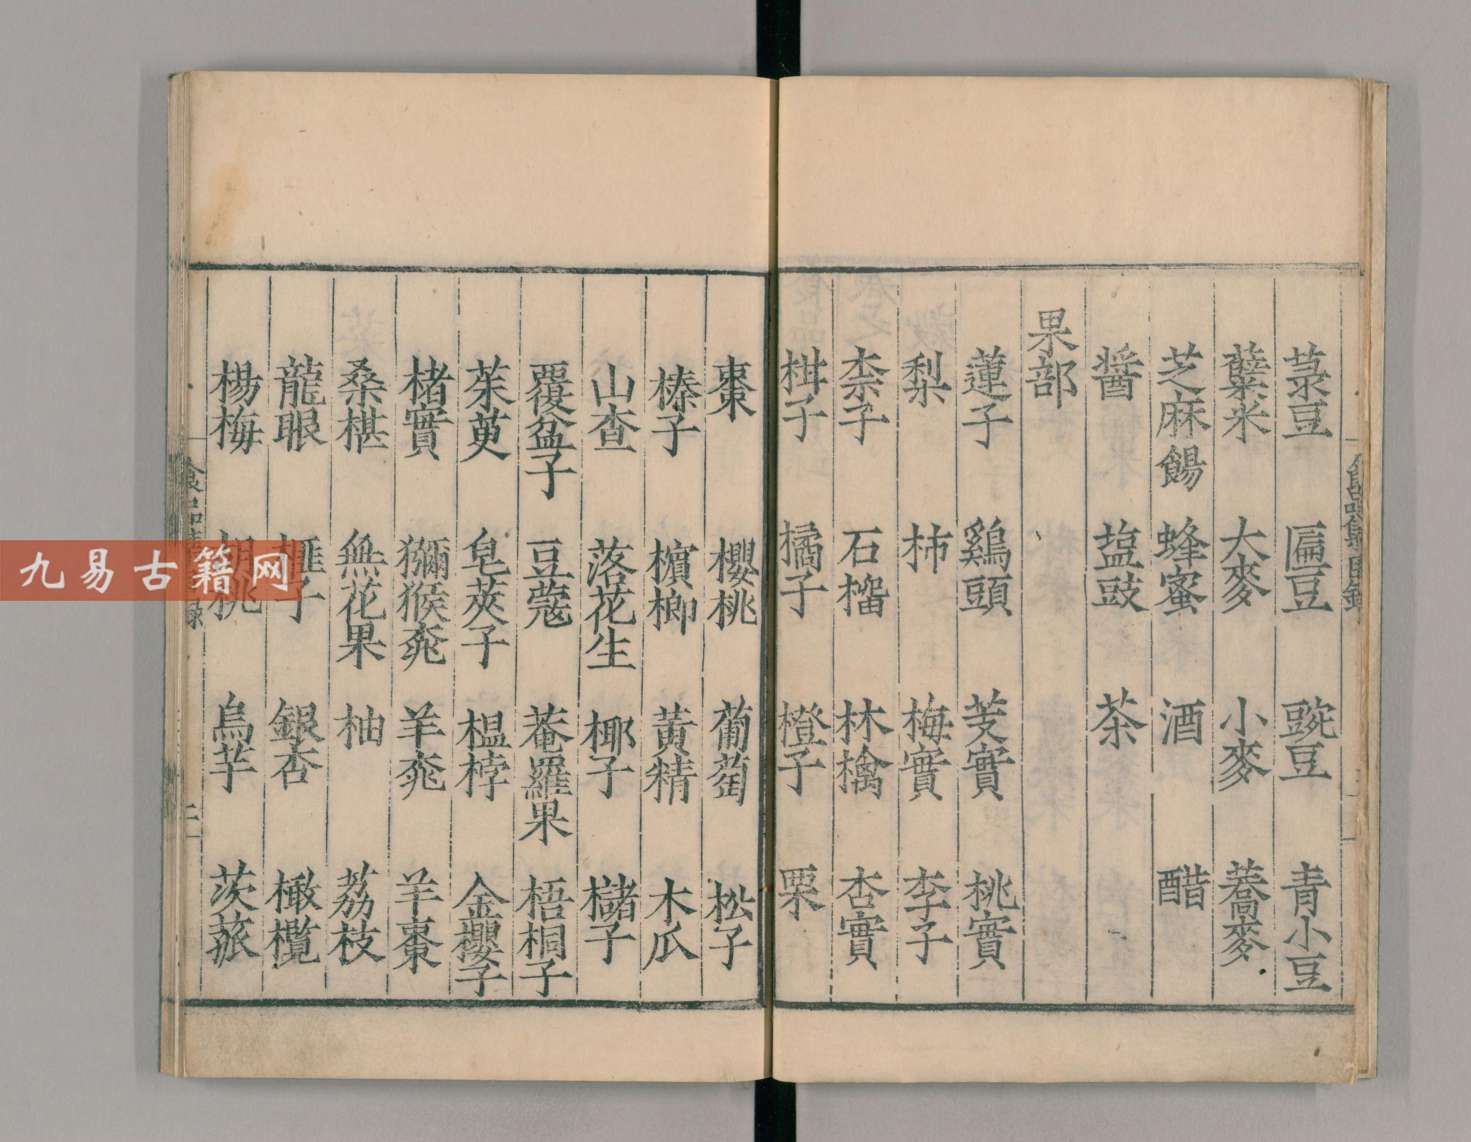 菉豆 匾豆 豌豆 青小豆
蘖米 大麥 小麥 蕎麥
芝麻餳 蜂蜜 酒 醋
醬 塩豉 茶
果部
蓮子 鷄頭 芰實 桃實
梨 柿 梅實 李子
柰子 石榴 林檎 杏實
柑子 橘子 橙子 栗
棗 櫻桃 葡萄 松子
榛子 檳榔 黃精 木瓜
山查 落花生 椰子 櫧子
覆盆子 豆蔻 菴羅果 梧桐子
茱萸 皂莢子 榲桲 金櫻子
楮實 獼猴桃 羊桃 羊棗
桑椹 無花果 柚 荔枝
龍眼 榧子 銀杏 橄欖
楊梅 胡桃 烏芋 茨菰
九易古籍网